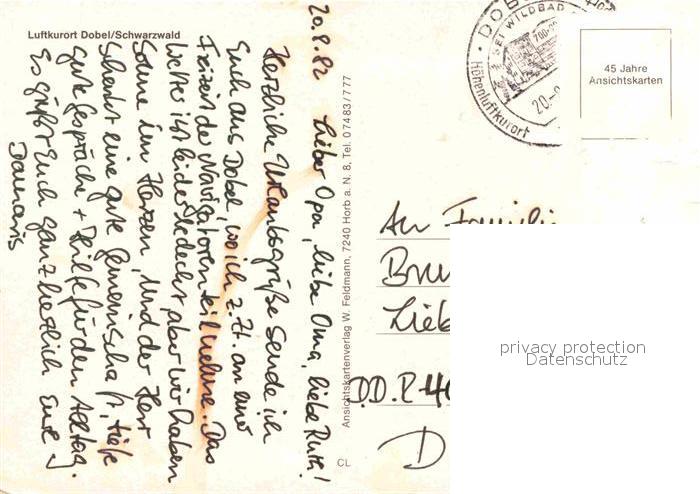 Luftkurort Dobel/Schwarzwald
20.8.82
Lieber Opa, liebe Oma, liebe Ruth!
Herzliche Urlaubsgrüße sende ich
Euch aus Dobel, wo ich z. Zt. an einer
Freizeit der Navigatoren teilnehme. Das
Wetter ist leider bedeckt, aber wir haben
Sonne im Herzen, und der Herr
schenkt eine gute Gemeinschaft, tiefe
gute Gespräche + Hilfe für den Alltag.
Es grüßt Euch ganz herzlich Eure
Damaris
Ansichtskartenverlag W. Feldmann, 7240 Horb a. N. 8, Tel. 07483/777
CL
DOBEL
BEI WILDBAD
700-
Höhenluftkurort
20.-
45 Jahre
Ansichtskarten
An Familie
Bru
Lieb
D.D.R 40
D
privacy protection
Datenschutz